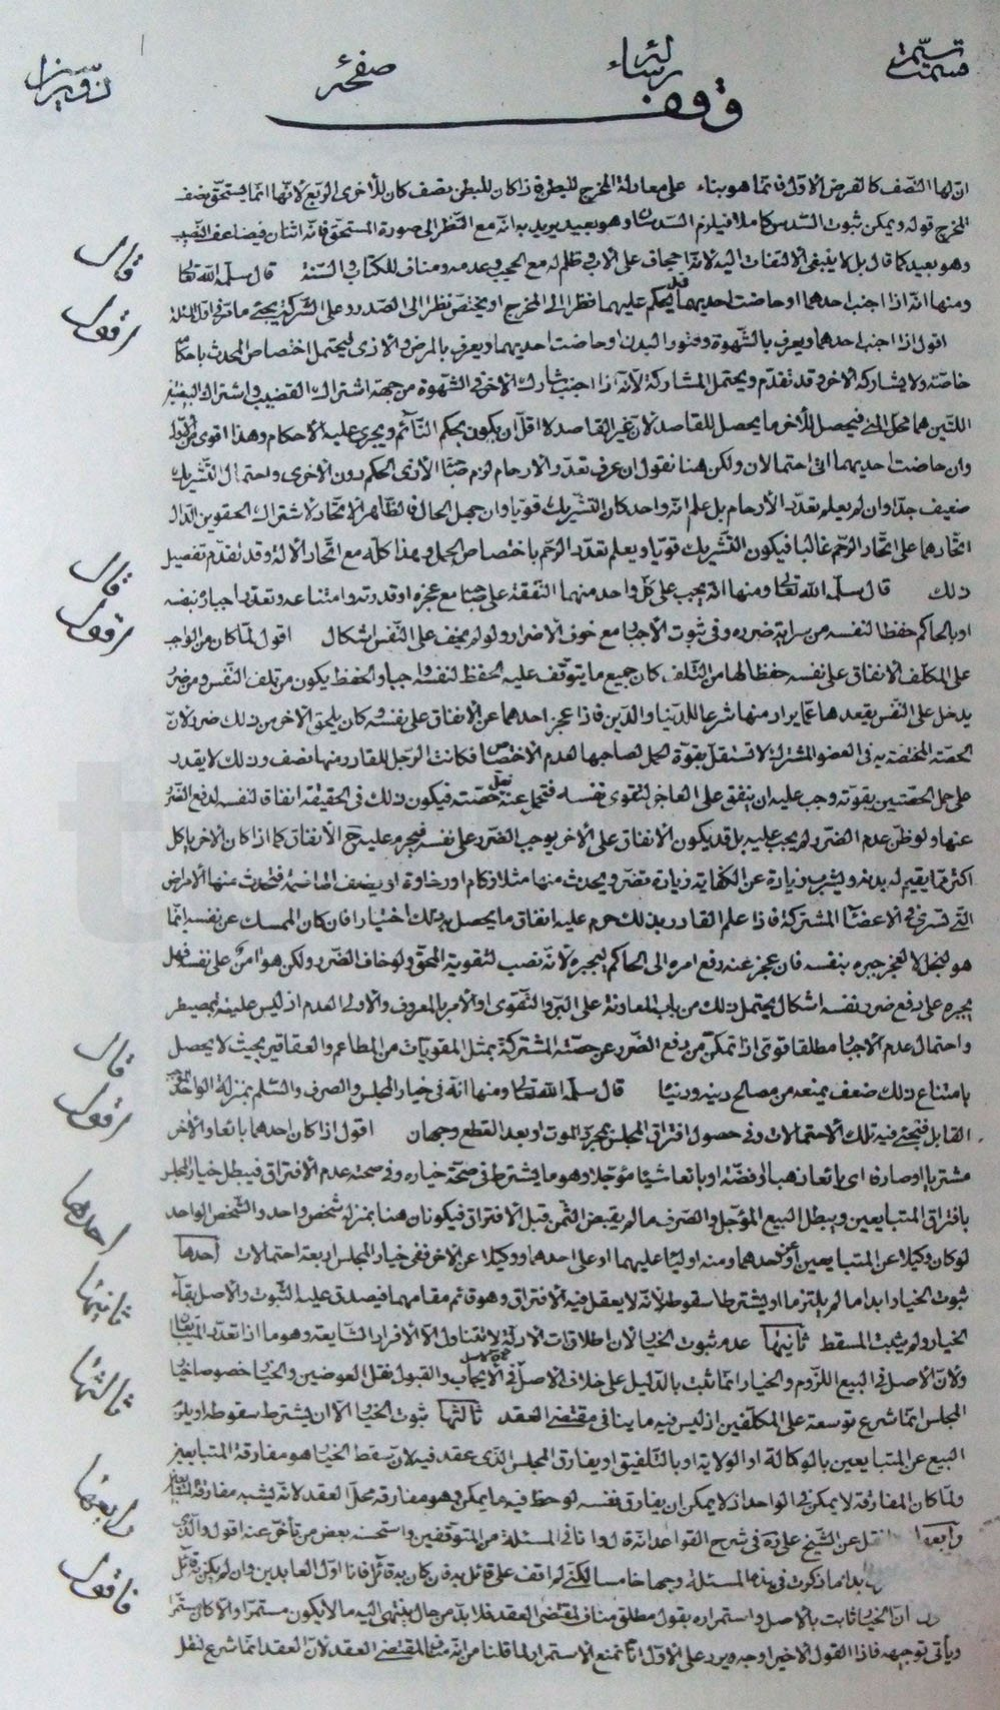 وقف
ان لها النصف كالفرض الاول فانما هو بناء على معادلة المخرج للبطن فاذا كان للبطن نصف كان للاخرى الربع لانها انما يستحق نصف
المخرج قوله ويمكن ثبوت السدس كاملا فيلزم السدسان وهو بعيد يريد به انه مع النظر الى صورة المستحق فانه اثنان فيضاعف النصيب
وهو بعيد كما قال بل لا ينبغى الالتفات اليه لانه اجحاف على الاب وظلم له مع الحجب وعدمه ومناف للكتاب والسنة قال سلمه الله تعالى
قال
ومنها انه اذا اجنب احدهما او حاضت احديهما فهل يحكم عليهما نظرا الى المخرج او يختص نظرا الى الصدر وعلى الشركة يجئ ما مر فى اول المسئلة
اقول
اقول اذا اجنب احدهما ويعرف بالشهوة وفتور البدن او حاضت احديهما ويعرف بالمرض والاذى فيحتمل اختصاص المحدث باحكام
خاصته ولا يشاركه الاخر وقد تقدم ويحتمل المشاركة لانه اذا اجنب شاركه الاخر فى الشهوة من جهة اشتراك القضيب واشتراك البيضتين
اللتين هما محل المنى فيحصل للاخر ما يحصل للقاصد لان غير القاصد لا اقل ان يكون بحكم النائم ويجرى عليه الاحكام وهذا اقوى من الاول
وان حاضت احديهما اتى احتمالان ولكن هنا نقول ان عرف تعدد الارحام لزم صاحبة الاذى الحكم دون الاخرى واحتمال التشريك
ضعيف جدا وان لم يعلم تعدد الارحام بل علم انه واحد كان التشريك قويا وان جهل الحال فالظاهر الاتحاد لاشتراك الحقوين الدال
اتحادهما على اتحاد الرحم غالبا فيكون التشريك قويا ويعلم تعدد الرحم باختصاص الحمل وهذا كله مع اتحاد الالة وقد تقدم تفصيل
ذلك قال سلمه الله تعالى ومنها انه يجب على كل واحد منهما النفقة على صاحبه مع عجزه او قدرته وامتناعه وتعذر اجباره بنفسه
قال
او بالحاكم حفظا لنفسه من سراية ضرره وفى ثبوت الاجبار مع خوف الاضرار ولو لم يخف على النفس اشكال اقول لما كان من الواجب
اقول
على المكلف الانفاق على نفسه حفظا لها من التلف كان جميع ما يتوقف عليه الحفظ لنفسه واجبا والحفظ يكون من تلف النفس ومن ضرر
يدخل على النفس يقعدها عما يراد منها شرعا للدنيا والدين فاذا عجز احدهما عن الانفاق على نفسه وكان يلحق الاخر من ذلك ضرر لان
الحصة المختصة به فى العضو المشترك لا تستقل بقوة لحمل صاحبها لعدم الاختصاص فكانت الرجل للقادر منها نصف وذلك لا يقدر
على حمل الحصتين بقوته وجب عليه ان ينفق على العاجز لتقوى نفسه فتحمل عنه ثقل حصته فيكون ذلك فى الحقيقة انفاقا لنفسه لدفع الضرر
عنها ولو ظن عدم الضرر لم يجب عليه بل قد يكون الانفاق على الاخر يوجب الضرر على نفسه فيحرم عليه ح الانفاق كما اذا كان الاخر ياكل
اكثر مما يقيم له بدنه ويشرب زيادة عن الكفاية زيادة تضر ويحدث منها مثلا زكام او رخاوة او يضعف الهاضمة فتحدث منها الامراض
التى تسرى فى الاعضاء المشتركة فاذا علم القادر بذلك حرم عليه انفاق ما يحصل به ذلك اختيارا فان كان الممسك عن نفسه انما
هو لبخل لا لعجز جبره بنفسه فان عجز عنه رفع امره الى الحاكم ليجبره لانه نصب لتقوية المحق ولو خاف الضرر ولكن هو امن على نفسه فهل
يجبره على دفع ضرر نفسه اشكال يحتمل ذلك من باب المعاونة على البر والتقوى او الامر بالمعروف والاولى العدم اذ ليس عليهم بمصيطر
واحتمال عدم الاجبار مطلقا قوى اذا تمكن من دفع الضرر عن حصته المشتركة بمثل المقويات من المطاعم والعقاقير بحيث لا يحصل
بامتناع ذلك ضعف يمنعه من مصالح دينه ودنياه قال سلمه الله تعالى ومنها انه فى خيار المجلس والصرف والسلم بمنزلة الواحد الموجب
قال
القابل فيجئ فيه تلك الاحتمالات وفى حصول افتراق المجلس بمجرد الموت او بعد القطع وجهان اقول اذا كان احدهما بائعا والاخر
اقول
مشتريا او صارفا اى بائعا ذهبا او فضة او بائعا شيئا مؤجلا وهو ما يشترط فى صحة خياره وفى صحته عدم الافتراق فيبطل خيار المجلس
بافتراق المتبايعين ويبطل البيع المؤجل والصرف ما لم يقبض الثمن قبل الافتراق فيكونان هنا بمنزلة شخص واحد والشخص الواحد
لو كان وكيلا عن المتبايعين او عن احدهما ومنه او وليا عليهما او على احدهما ووكيلا عن الاخر ففى خيار المجلس اربعة احتمالات احدها
احدها
ثبوت الخيار ابدا ما لم يلتزما او يشترطا سقوطه لانه لا يعقل فيه الافتراق وهو قائم مقامهما فيصدق عليه الثبوت والاصل بقاء
الخيار ولم يثبت المسقط ثانيها عدم ثبوت الخيار لان اطلاقات الادلة لا تتناول الا الافراد الشايعة وهو ما اذا تعدد المتبايعان
ثانيها
ولان الاصل فى البيع اللزوم والخيار انما ثبت بالدليل على خلاف الاصل فى الايجاب والقبول نقل العوضين والخيار خصوصا خيار
المجلس انما شرع توسعة على المكلفين اذ ليس فيه ما ينافى مقتضى العقد ثالثها ثبوت الخيار الا ان يشترط سقوطه او يلزم
ثالثها
البيع عن المتبايعين بالوكالة او الولاية او بالتلفيق او يفارق المجلس الذى عقد فيه لان مسقط الخيار هو مفارقة المتبايعين
ولما كان المفارقة لا يمكن فى الواحد اذ لا يمكن ان يفارق نفسه لوحظ فيه ما يمكن وهو مفارقة محل العقد لانه يشبه مفارقة المتبايعين
رابعها
ورابعها نقل عن الشيخ على ره فى شرح القواعد انه قال وانا فى المسئلة من المتوقفين واستحسنه بعض من تاخر عنه اقول والذى
بدا مما ذكرت فى هذه المسئلة وجها خامسا لكنى لم اقف على قائل به فان كان به قائل فانا اول العابدين وان لم يكن به قائل
فاقول
ان الخيار ثابت بالاصل واستمراره بقول مطلق مناف لمقتضى العقد فلا بد من حال ينتهى اليه ما لا يكون مستمرا والا كان مستمرا
وياتى توجيهه فاذا القول الاخير اوجه ويرد على الاول انا نمنع الاستمرار لما قلنا من انه مناف لمقتضى العقد لان العقد انما شرع لنقل